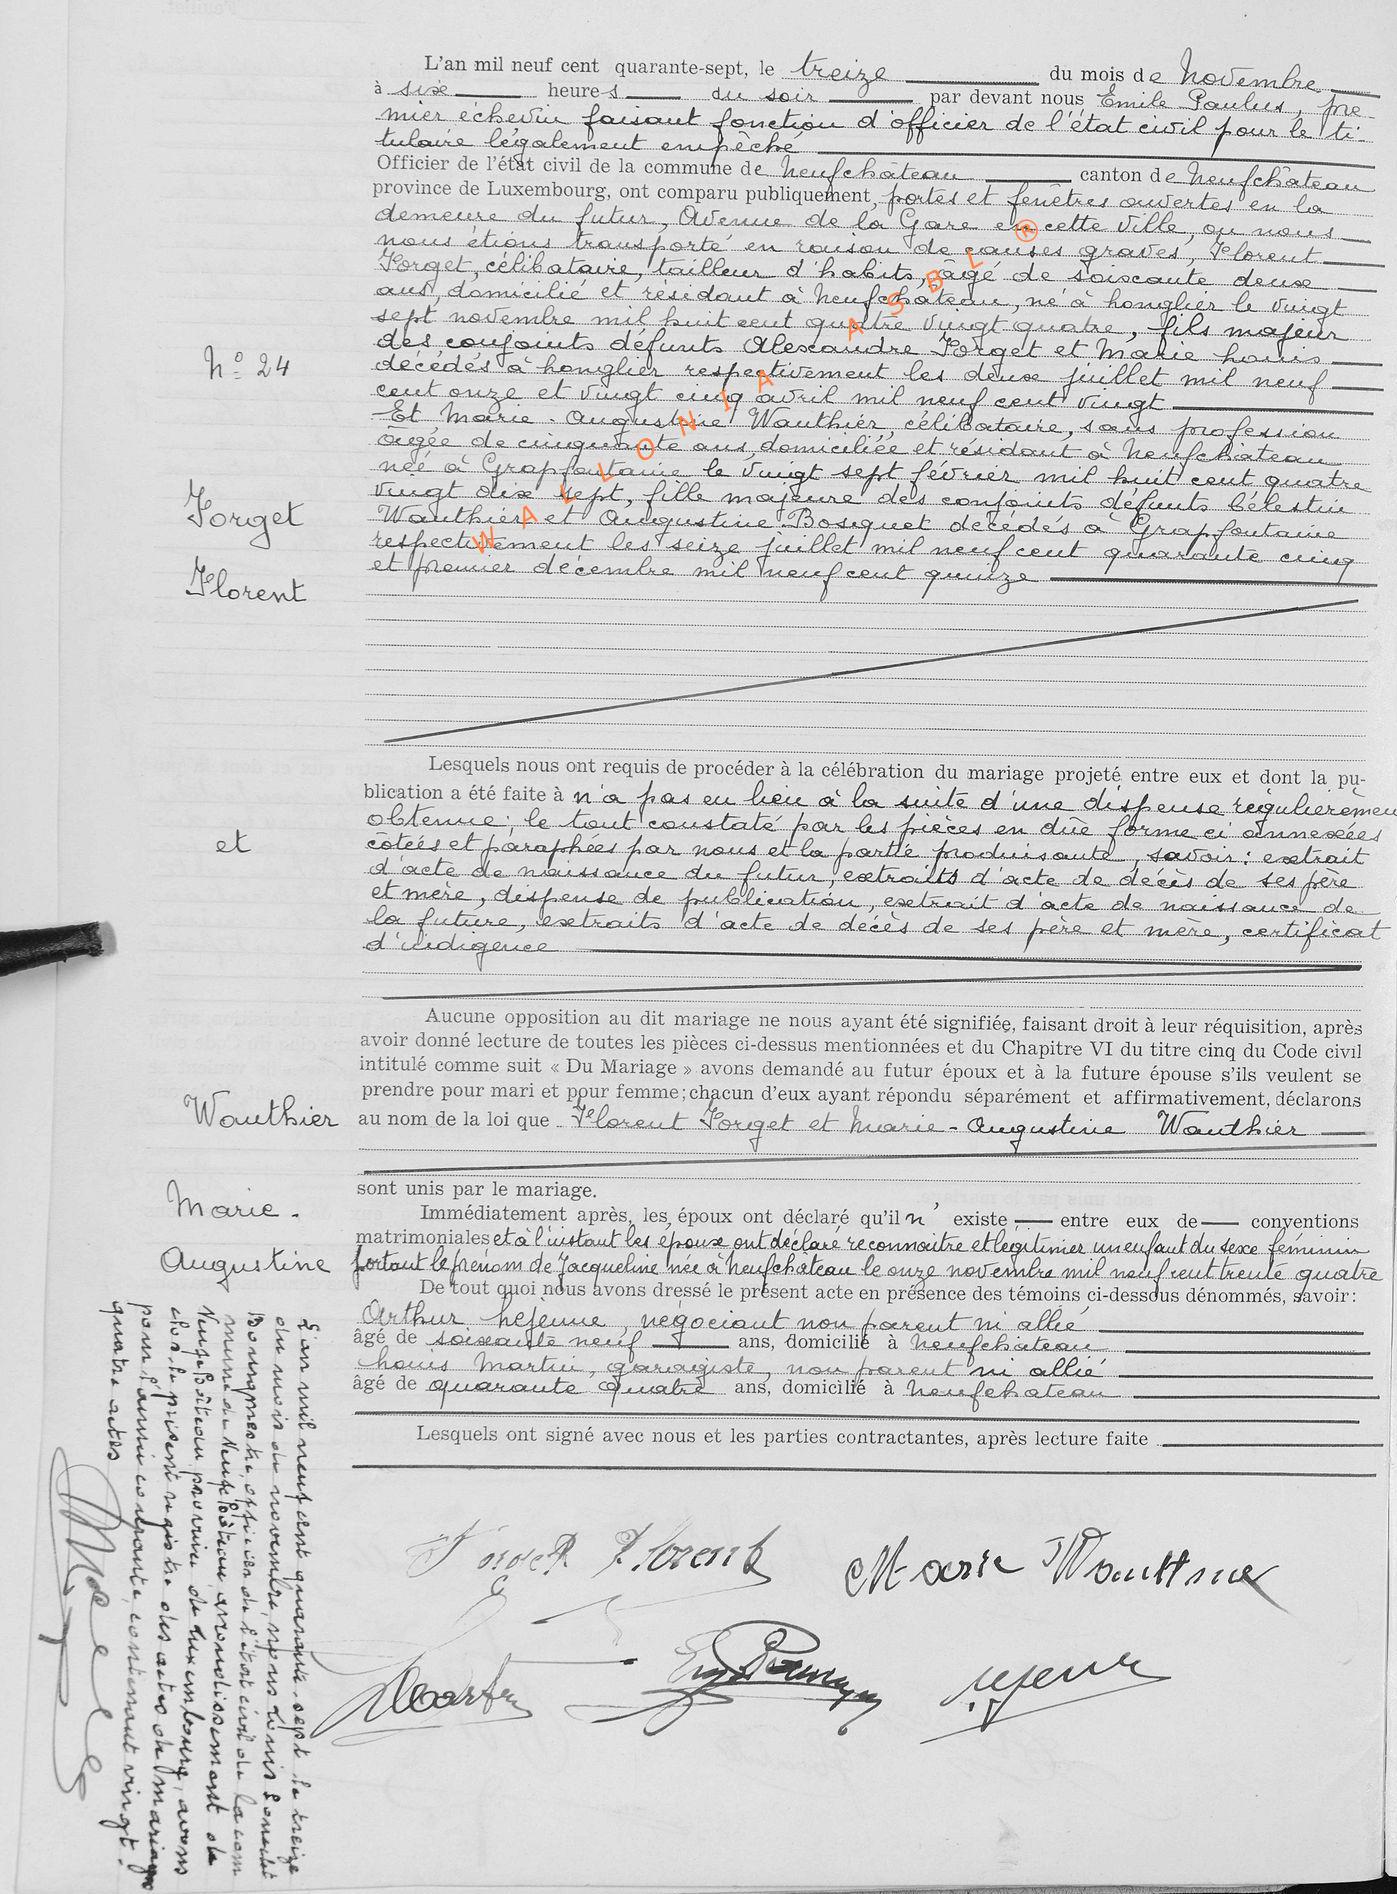 L'an mil neuf cent quarante-sept, le treize du mois de Novembre
à six heures du soir par devant nous Emile Paulus, pre-
mier échevin faisant fonction d'officier de l'état civil pour le ti-
tulaire légalement empêché
Officier de l'état civil de la commune de Neufchâteau canton de Neufchâteau
province de Luxembourg, ont comparu publiquement, portes et fenêtres ouvertes en la
demeure du futur, Avenue de la Gare en cette ville, où nous
nous étions transporté en raison de causes graves, Florent
Forget, célibataire, tailleur d'habits, âgé de soixante deux
ans, domicilié et résidant à Neufchâteau, né à Longlier le vingt
sept novembre mil huit cent quatre vingt quatre, fils majeur
des conjoints défunts Alexandre Forget et Marie Louis
décédés à Longlier respectivement les deux juillet mil neuf
cent onze et vingt cinq avril mil neuf cent vingt
Et Marie-Augustine Wauthier, célibataire, sans profession
âgée de cinquante ans, domiciliée et résidant à Neufchâteau
née à Grapfontaine le vingt sept février mil huit cent quatre
vingt dix sept, fille majeure des conjoints défunts Célestin
Wauthier et Augustine Bosquet décédés à Grapfontaine
respectivement les seize juillet mil neuf cent quarante cinq
et premier décembre mil neuf cent quinze
WALLONIA ASBL ®
N° 24
Forget
Florent
et
Wauthier
Marie-
Augustine
Lesquels nous ont requis de procéder à la célébration du mariage projeté entre eux et dont la pu-
blication a été faite à n'a pas eu lieu à la suite d'une dispense régulièrement
obtenue; le tout constaté par les pièces en dûe forme ci annexées
côtées et paraphées par nous et la partie produisante, savoir: extrait
d'acte de naissance du futur, extraits d'acte de décès de ses père
et mère, dispense de publication, extrait d'acte de naissance de
la future, extraits d'acte de décès de ses père et mère, certificat
d'indigence
Aucune opposition au dit mariage ne nous ayant été signifiée, faisant droit à leur réquisition, après
avoir donné lecture de toutes les pièces ci-dessus mentionnées et du Chapitre VI du titre cinq du Code civil
intitulé comme suit « Du Mariage » avons demandé au futur époux et à la future épouse s'ils veulent se
prendre pour mari et pour femme; chacun d'eux ayant répondu séparément et affirmativement, déclarons
au nom de la loi que Florent Forget et Marie-Augustine Wauthier
sont unis par le mariage.
Immédiatement après, les époux ont déclaré qu'il n'existe entre eux de conventions
matrimoniales et à l'instant les époux ont déclaré reconnaitre et légitimer un enfant du sexe féminin
portant le prénom de Jacqueline née à Neufchâteau le onze novembre mil neuf cent trente quatre
De tout quoi nous avons dressé le présent acte en présence des témoins ci-dessous dénommés, savoir:
Arthur Lejeune, négociant non parent ni allié
âgé de soixante neuf ans, domicilié à Neufchâteau
Louis Martin, garagiste, non parent ni allié
âgé de quarante quatre ans, domicilié à Neufchâteau
Lesquels ont signé avec nous et les parties contractantes, après lecture faite
Forget Florent
Marie Wauthier
Martin
Lejeune
L'an mil neuf cent quarante-sept le treize
du mois de novembre, nous Louis
Bourgmestre, officier de l'état civil de la com
mune de Neufchâteau, arrondissement de
Neufchâteau, province de Luxembourg, avons
clos le présent registre des actes de mariage
pour l'année courante, contenant vingt-
quatre actes